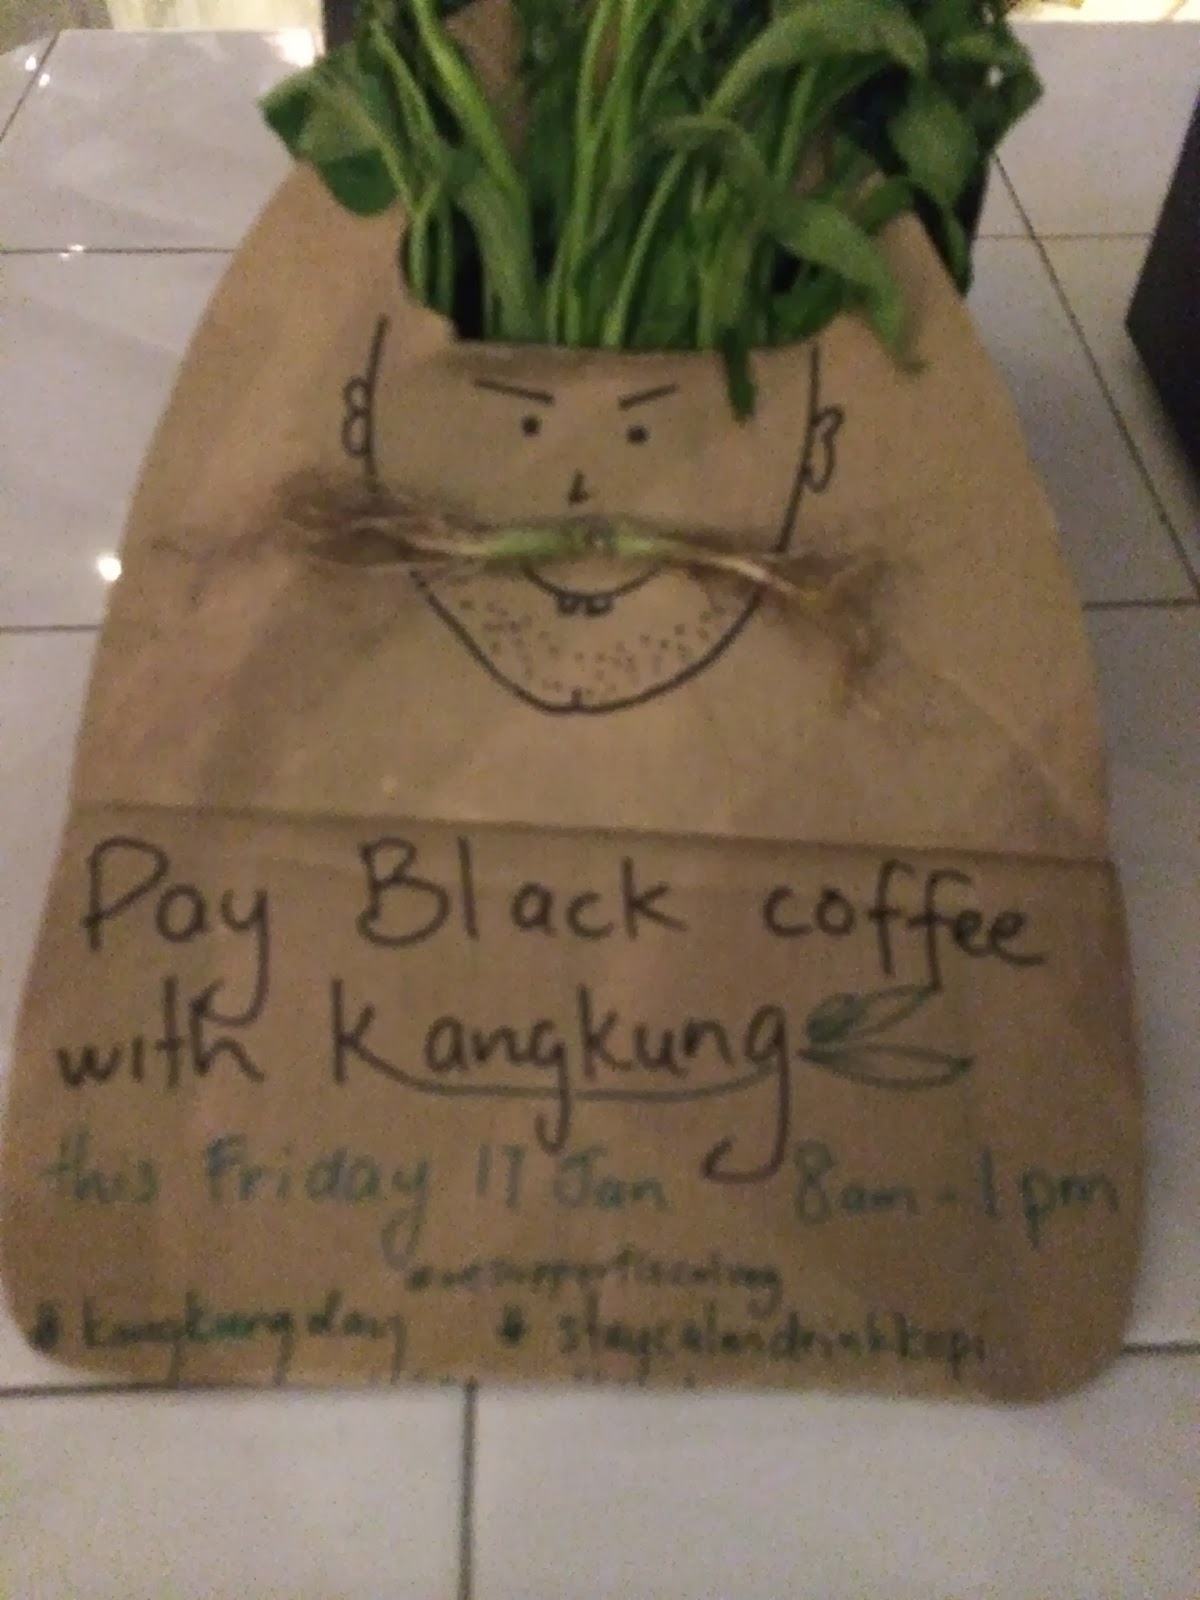 Pay Black coffee
with Kangkung
this Friday 17 Jan 8am - 1pm
#kangkungday #staycalmdrinkkopi